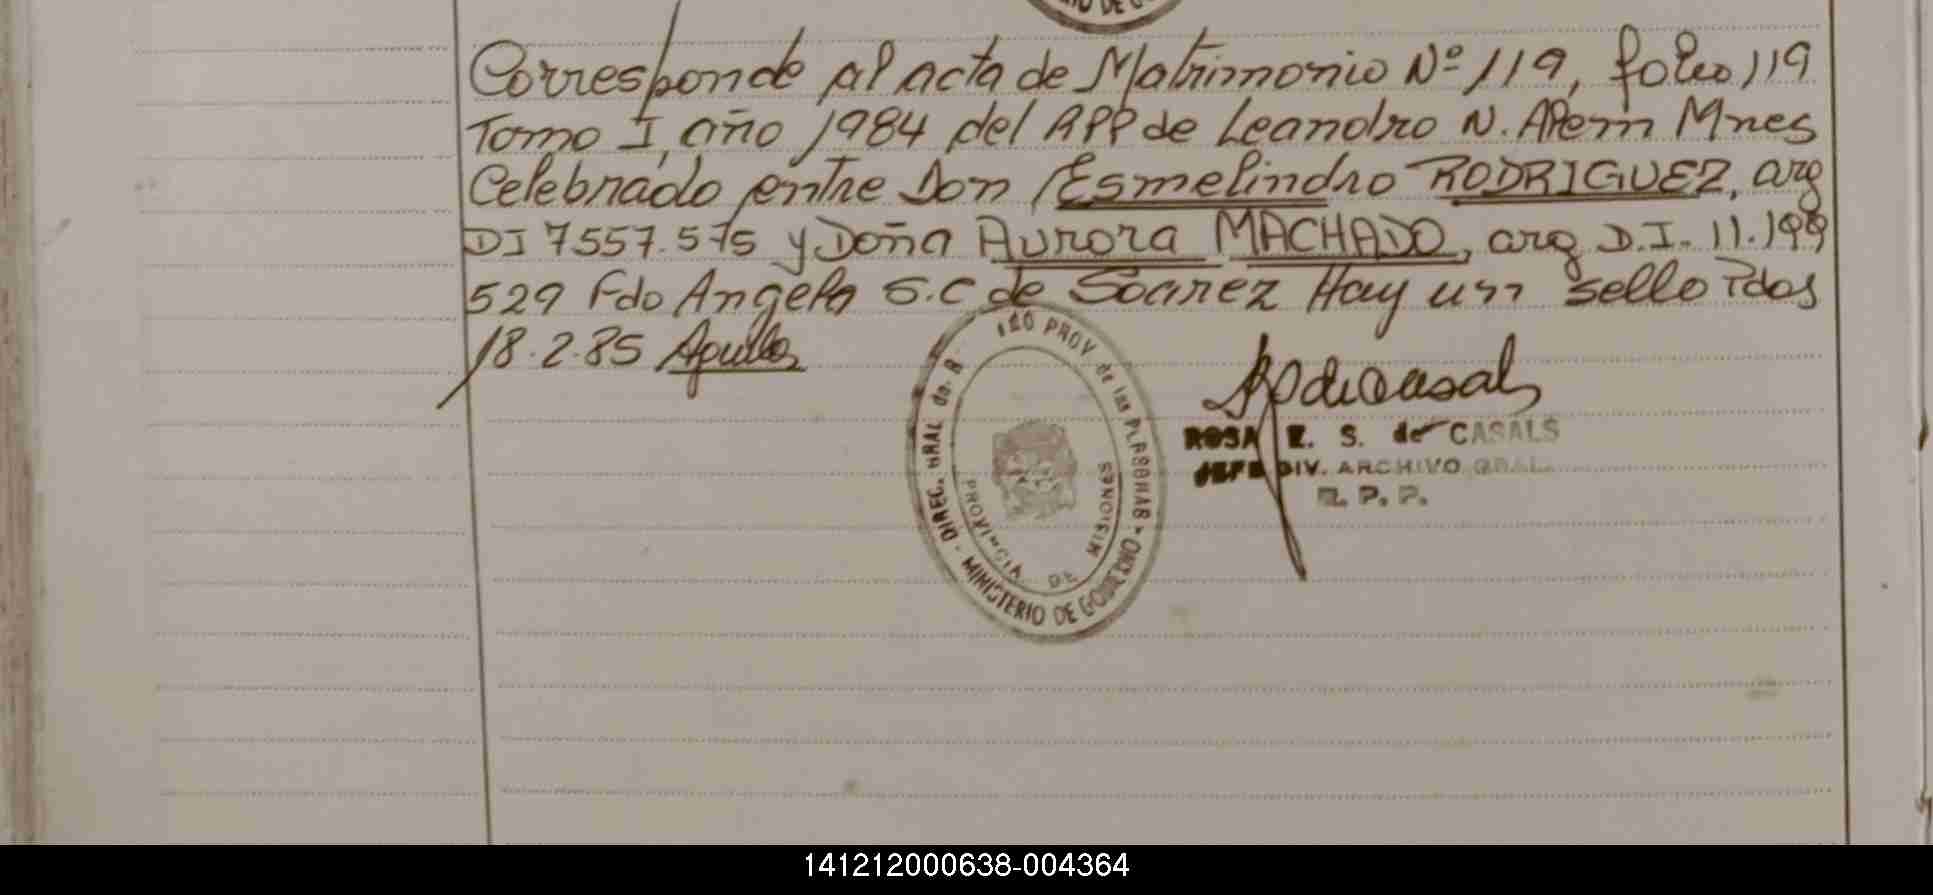 Corresponde al acta de Matrimonio Nº 119, folio 119
Tomo I, año 1984 del RPP de Leandro N. Alem Mnes
Celebrado entre Don Esmelindro RODRIGUEZ, arg
DI 7557.575 y Doña Aurora MACHADO, arg D.I. 11.199
529 Fdo Angela S.C de Soarez Hay un sello Pdas
18.2.85
DIREC. GRAL de. R PROV de las PERSONAS - MINISTERIO DE GOBIERNO
PROVINCIA DE MISIONES
ROSA E. S. de CASALS
JEFE DIV. ARCHIVO GRAL.
R. P. P.
141212000638-004364